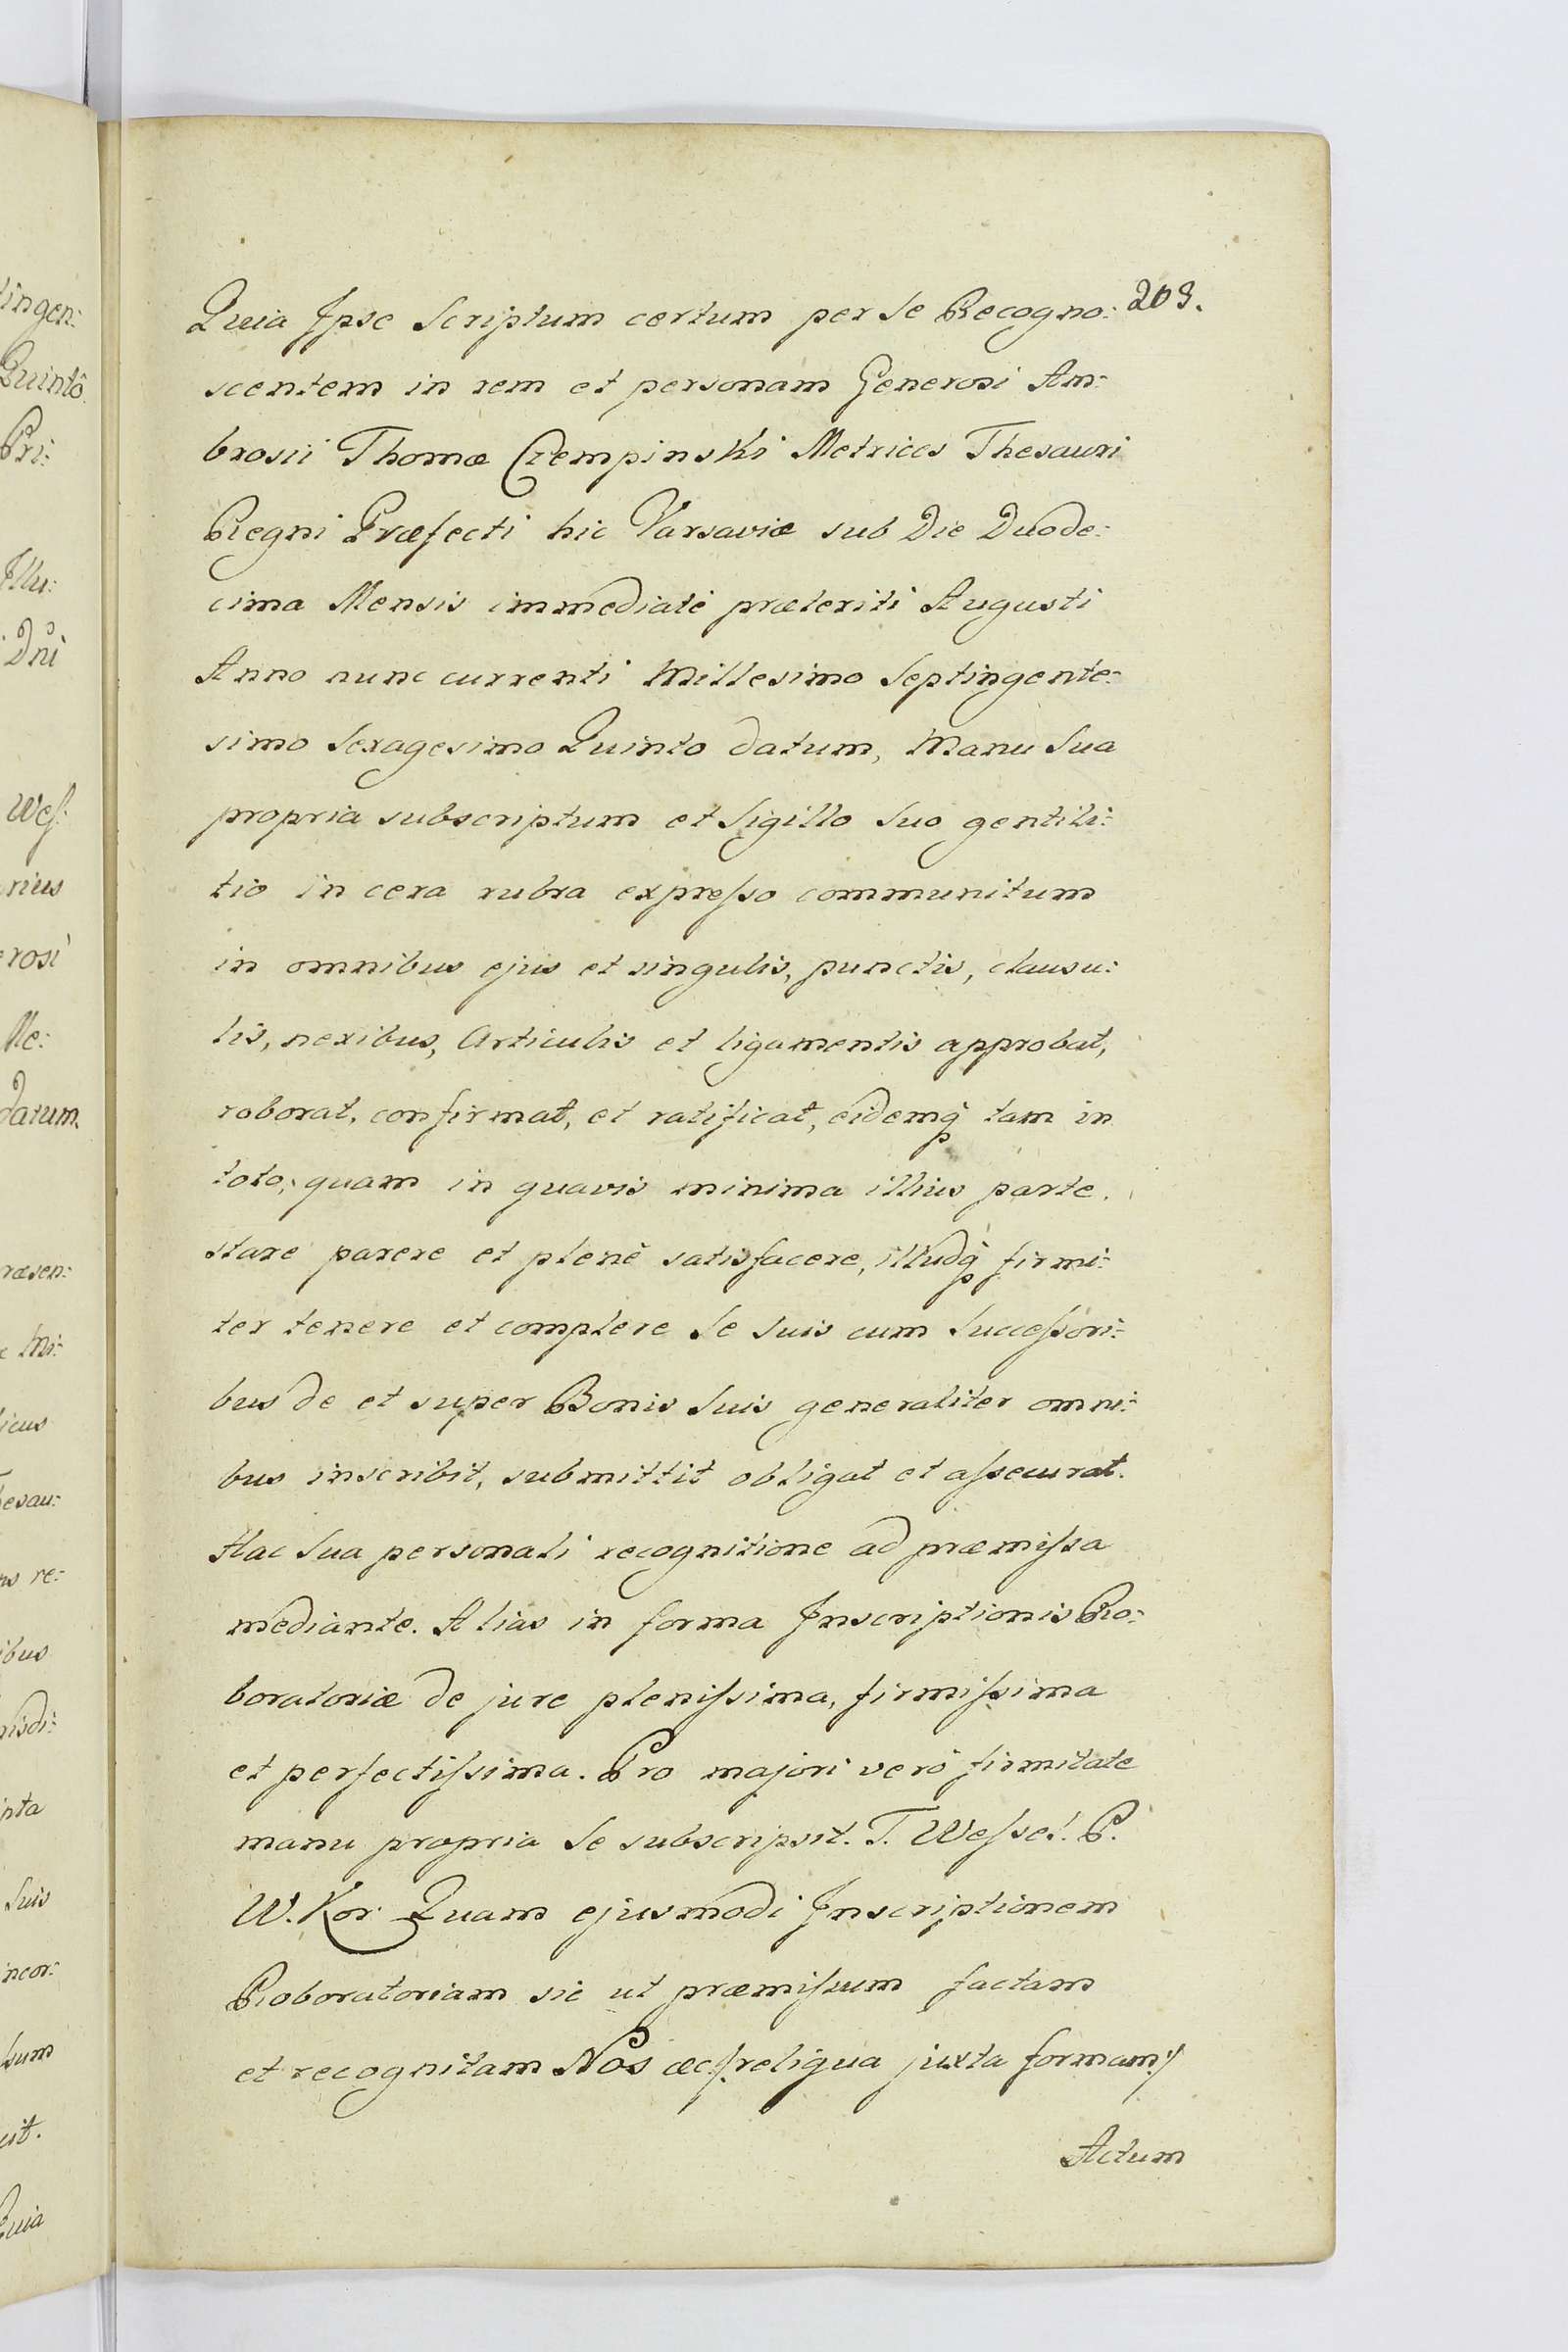 203.
Quia Ipse Scriptum certum per Se Recogno:
scentem in rem et personam Generosi Am:
brosii Thomæ Czempinski Metrices Thesauri
Regni Præfecti hic Varsaviæ sub Die Duode:
cima Mensis immediatè præteriti Augusti
Anno nunc currenti Millesimo Septingente:
simo Sexagesimo Quinto datum, Manu Sua
propria subscriptum et Sigillo Suo gentili:
tio in cera rubra expresso communitum
in omnibus ejus et singulis, punctis, clausu:
lis, nexibus, Articulis et ligamentis approbat,
roborat, confirmat, et ratificat, eidemq̃ tam in
toto, quam in quavis minima illius parte.
stare parere et plenè satisfacere, illudq̃ firmi:
ter tenere et complere Se Suis cum Successori:
bus de et super Bonis Suis generaliter omni:
bus inscribit, submittit obligat et assecurat.
Hac Sua personali recognitione ad præmissa
mediante. Alias in forma Inscriptionis Ro:
boratoriæ de jure plenissima, firmissima
et perfectissima. Pro majori verò firmitate
manu propria Se subscripsit. T. Wessel. P.
W. Kor. Quam ejusmodi Inscriptionem
Roboratoriam sic ut præmissum factam
et recognitam Nos &c /:reliqua juxta formam:/
Actum
tingen:
Quintô
Pri:
Illu:
Dñi
Wes:
nius
erosi
Me:
datum.
ræsen:
Mi:
licus
hesau:
re:
ibus
risdi:
ipta
Suis
incor:
sum
cit.
Quia